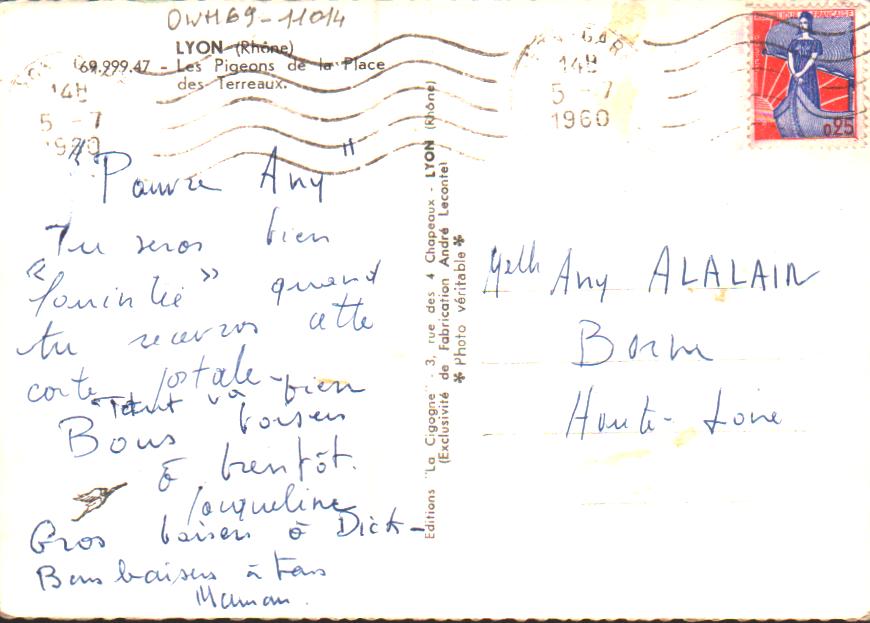 OWH69-11014
LYON (Rhône)
69.999.47 - Les Pigeons de la Place
des Terreaux.
14H
5 - 7
1960
GARE
14H
5 - 7
1960
RÉPUBLIQUE FRANÇAISE
0,25
"Pauvre Any"
Tu seras bien
quand
tu recevras cette
carte postale -
"Tout va bien
Bons baisers
à bientôt.
Jacqueline
Gros baisers à Dick -
Bons baisers à tous
Maman.
Editions "La Cigogne" . 3, rue des 4 Chapeaux - LYON (Rhône)
(Exclusivité de Fabrication André Leconte)
* Photo véritable *
Melle Any ALALAIN
Borne
Haute-Loire